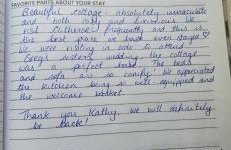 FAVORITE PARTS ABOUT YOUR STAY
Beautiful cottage absolutely immaculate
and both cosy and luxurious. We
visit frequently and this is
the best place we have ever stayed ♡
We were visiting in order to attend
sisters wedding, the cottage
was a perfect base. The beds
and sofa are so comfy. We appreciated
the kitchen being so well equipped and
the welcome basket.
Thank you Kathy, we will definitely
be back!